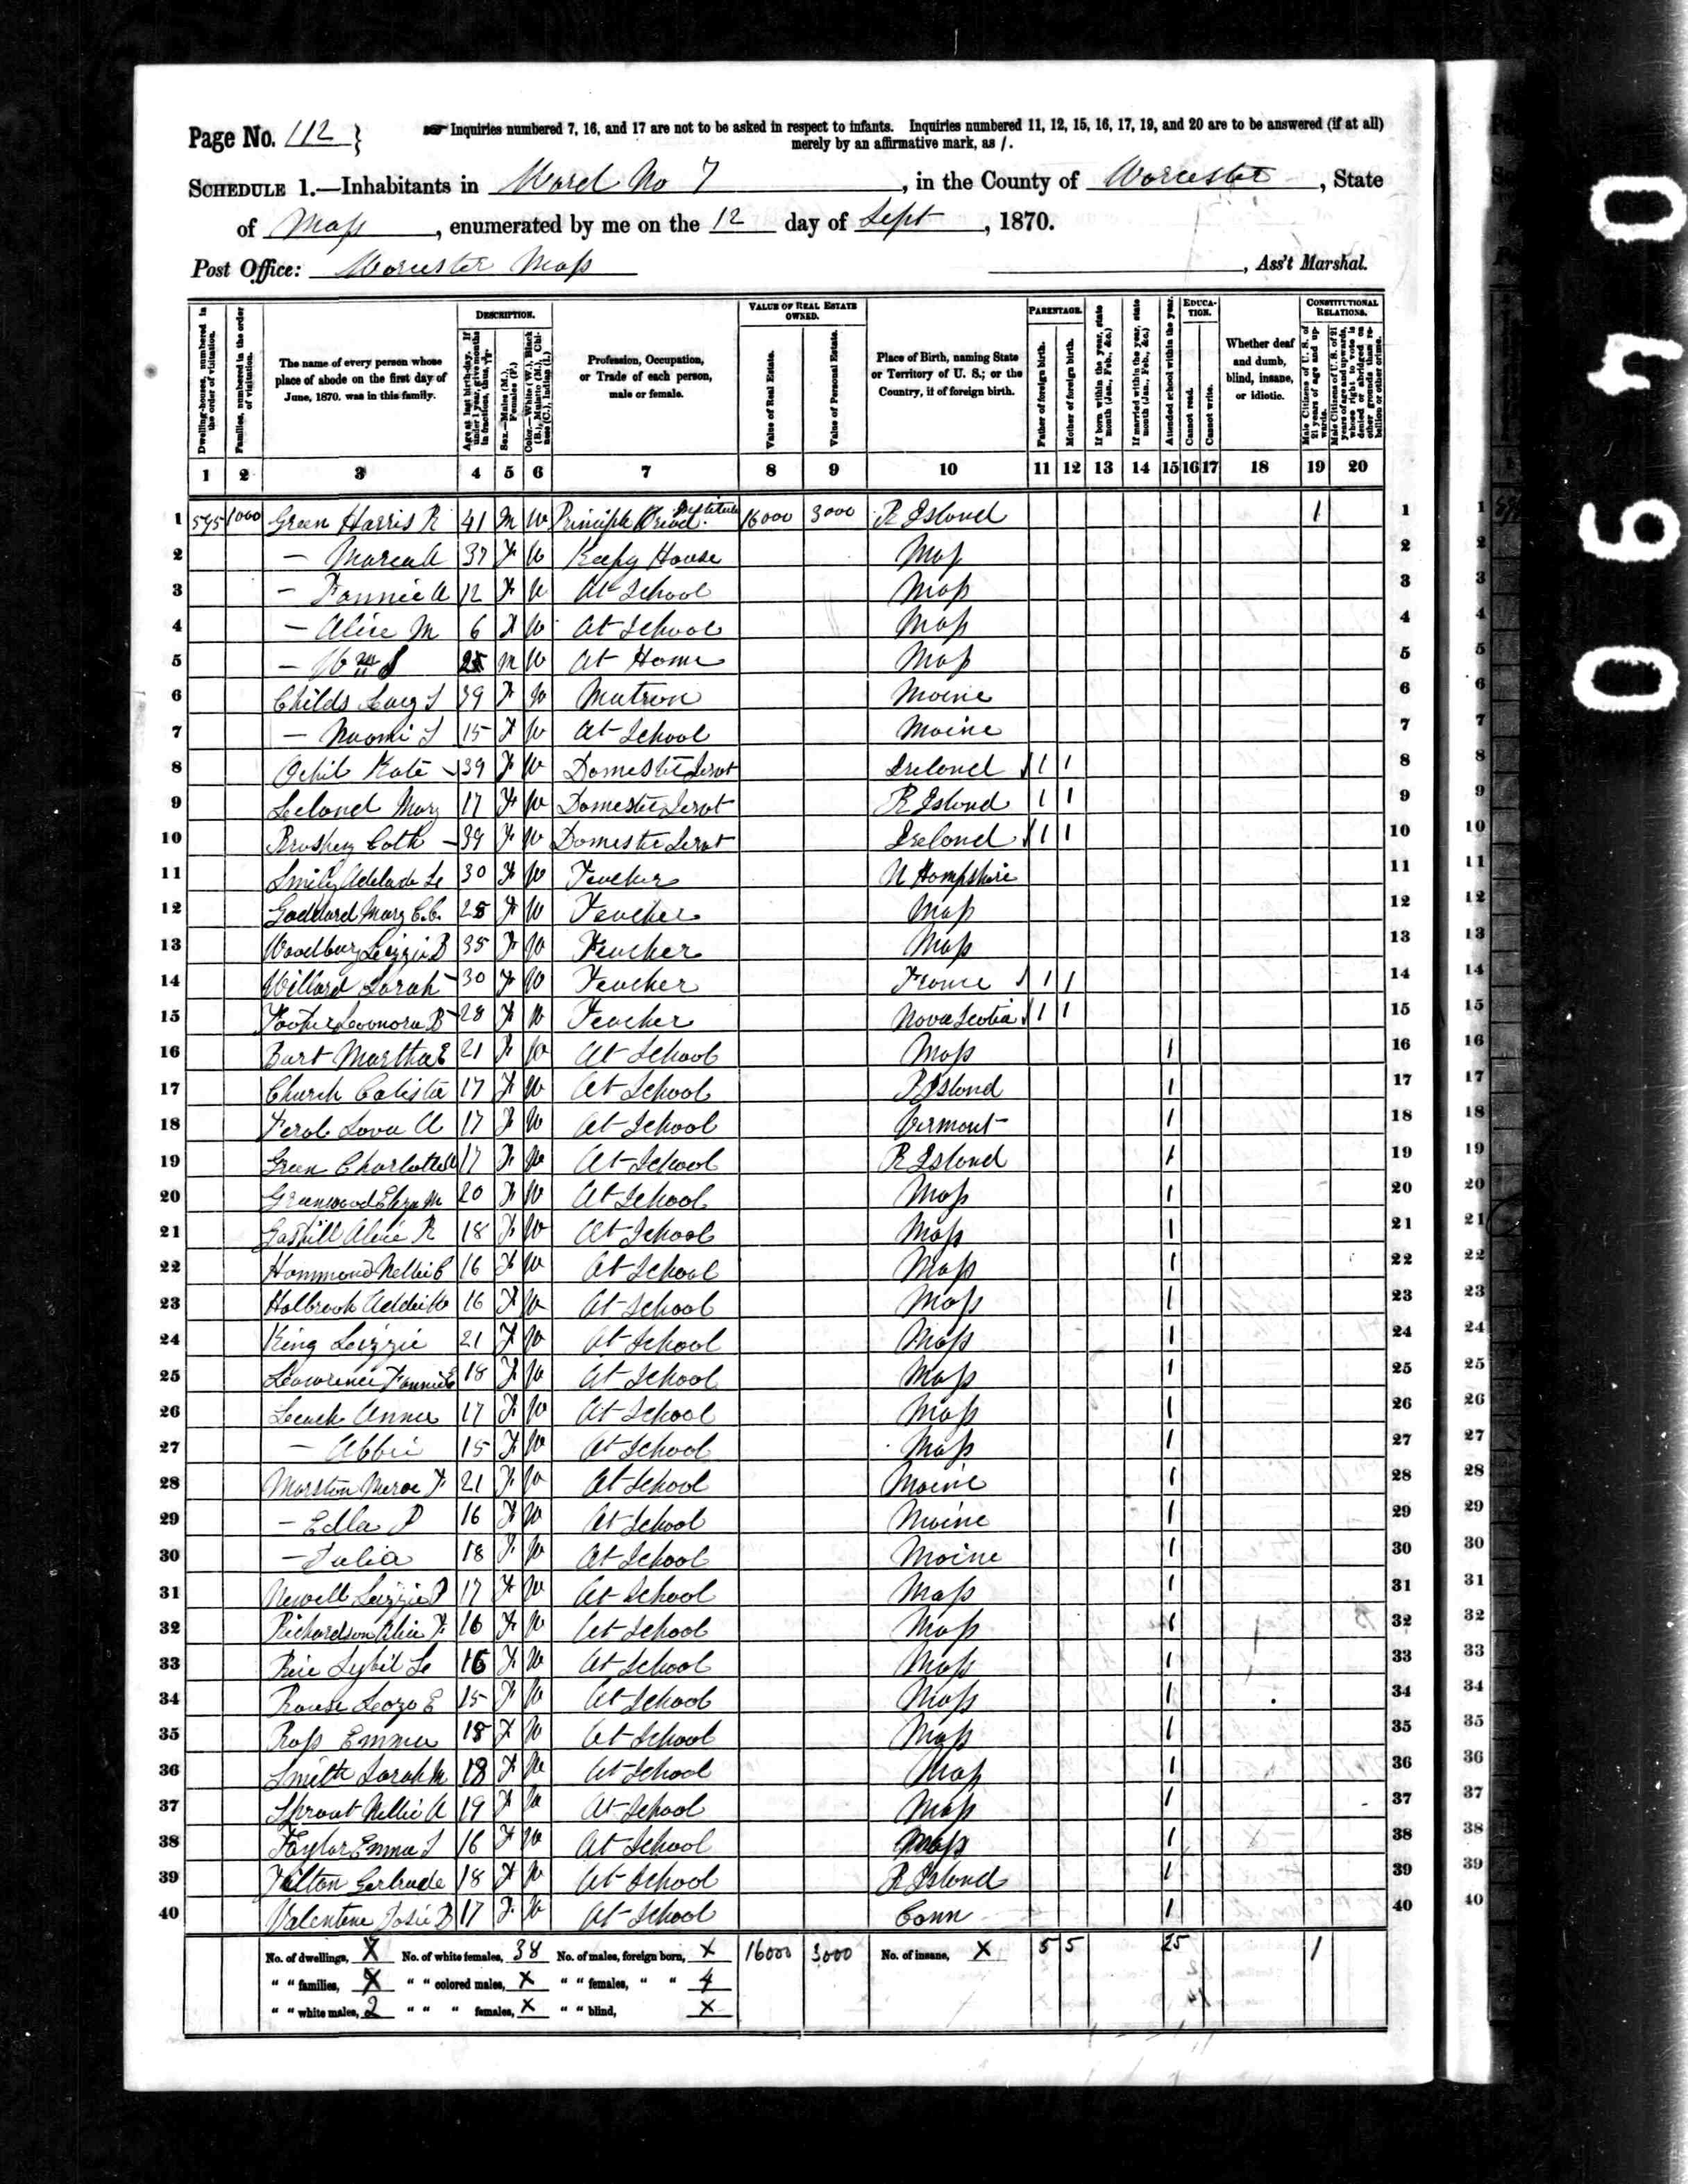 Page No. 112
Inquiries numbered 7, 16, and 17 are not to be asked in respect to infants. Inquiries numbered 11, 12, 15, 16, 17, 19, and 20 are to be answered (if at all)
merely by an affirmative mark, as /.
SCHEDULE 1.—Inhabitants in Ward No 7, in the County of Worcester, State
of Mass, enumerated by me on the 12 day of Sept, 1870.
Post Office: Worcester Mass , Ass't Marshal.
Dwelling-houses, numbered in the order of visitation.
Families, numbered in the order of visitation.
The name of every person whose place of abode on the first day of June, 1870, was in this family.
DESCRIPTION.
Age at last birth-day. If under 1 year, give months in fractions, thus,
Sex.—Males (M.), Females (F.)
Color.—White (W.), Black (B.), Mulatto (M.), Chinese (C.), Indian (I.)
Profession, Occupation, or Trade of each person, male or female.
VALUE OF REAL ESTATE OWNED.
Value of Real Estate.
Value of Personal Estate.
Place of Birth, naming State or Territory of U. S.; or the Country, if of foreign birth.
PARENTAGE.
Father of foreign birth.
Mother of foreign birth.
If born within the year, state month (Jan., Feb., &c.)
If married within the year, state month (Jan., Feb., &c.)
Attended school within the year.
EDUCATION.
Cannot read.
Cannot write.
Whether deaf and dumb, blind, insane, or idiotic.
CONSTITUTIONAL RELATIONS.
Male Citizens of U. S. of 21 years of age and upwards.
Male Citizens of U. S. of 21 years of age and upwards, whose right to vote is denied or abridged on other grounds than rebellion or other crime.
1 2 3 4 5 6 7 8 9 10 11 12 13 14 15 16 17 18 19 20
1 595 1000 Green Harris R 41 M W Principle Institute 16000 3000 R Island 1 1
2 — Maria A 37 F W Keepg House Mass 2
3 — Fannie A 12 F W At School Mass 3
4 — Alice M 6 F W At School Mass 4
5 — Wm S M W At Home Mass 5
6 Childs Lucy S 39 F W Matron Maine 6
7 — Naomi S 15 F W At School Maine 7
8 Kate 39 F W Domestic Servt Ireland 1 1 8
9 Leland Mary 17 F W Domestic Servt R Island 1 1 9
10 Cath 39 F W Domestic Servt Ireland 1 1 10
11 Adelade 30 F W Teacher N Hampshire 11
12 Goddard Mary C.C. 25 F W Teacher Mass 12
13 Woodbury Lizzie B 35 F W Teacher Mass 13
14 Willard Sarah 30 F W Teacher France 1 1 14
15 Leonora B 28 F W Teacher Nova Scotia 1 1 15
16 Burt Martha E 21 F W At School Mass 1 16
17 Church Calista 17 F W At School R Island 1 17
18 Lova A 17 F W At School Vermont 1 18
19 Green Charlotte 17 F W At School R Island 1 19
20 Greenwood Eliza M 20 F W At School Mass 1 20
21 Gaskill Alice R 18 F W At School Mass 1 21
22 Hammond Nellie C 16 F W At School Mass 1 22
23 Holbrook Addie 16 F W At School Mass 1 23
24 King Lizzie 21 F W At School Mass 1 24
25 Lawrence Fannie E 18 F W At School Mass 1 25
26 Leach Anna 17 F W At School Mass 1 26
27 — Abbie 15 F W At School Mass 1 27
28 Marston Meroe F 21 F W At School Maine 1 28
29 — Ella P 16 F W At School Maine 1 29
30 — Julia 18 F W At School Maine 1 30
31 Newell Lizzie P 17 F W At School Mass 1 31
32 Richardson Alice F 16 F W At School Mass 1 32
33 Rice Sybil 16 F W At School Mass 1 33
34 E 15 F W At School Mass 1 34
35 Ross Emma 18 F W At School Mass 1 35
36 Smith Sarah M 18 F W At School Mass 1 36
37 Sprout Nellie A 19 F W At School Mass 1 37
38 Taylor Emma S 16 F W At School Mass 1 38
39 Tilton Gertrude 18 F W At School R Island 1 39
40 Valentine Josie B 17 F W At School Conn 1 40
No. of dwellings, X No. of white females, 38 No. of males, foreign born, X 16000 3000 No. of insane, X 5 5 25 1
" " families, X " " colored males, X " " females, " " 4
" " white males, 2 " " " females, X " " blind, X
0490